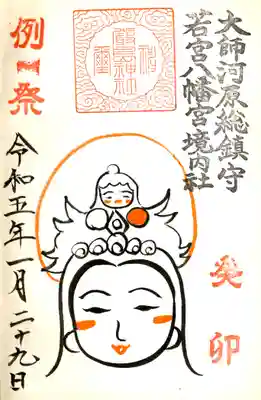 大師河原総鎮守
若宮八幡宮境内社
癸卯
例祭
令和五年一月二十九日